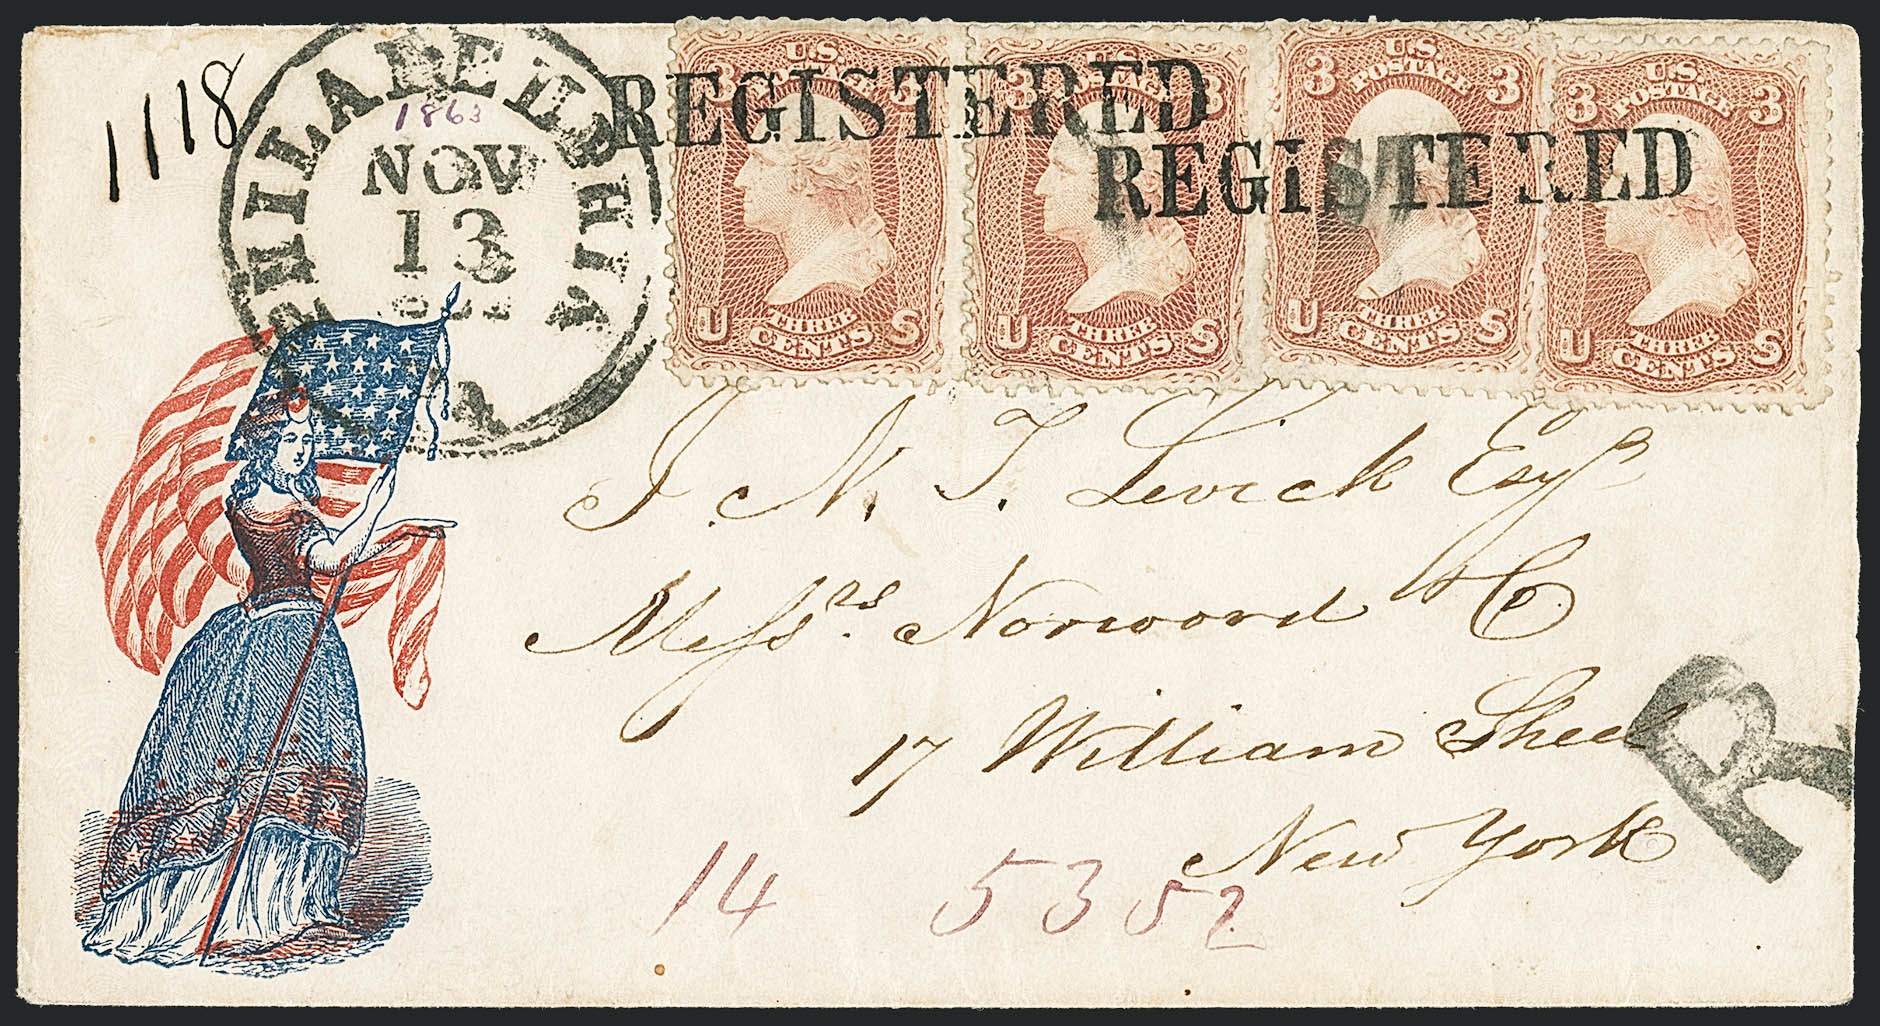 1118
PHILADELPHIA
1863
NOV
13
PA
REGISTERED
REGISTERED
U.S. POSTAGE
3 3
U THREE CENTS S
U.S. POSTAGE
3 3
U THREE CENTS S
U.S. POSTAGE
3 3
U THREE CENTS S
U.S. POSTAGE
3 3
U THREE CENTS S
J. N. T. Levick Esqr
Messrs. Norwood & Co
17 William Street
New York
R
14 5352